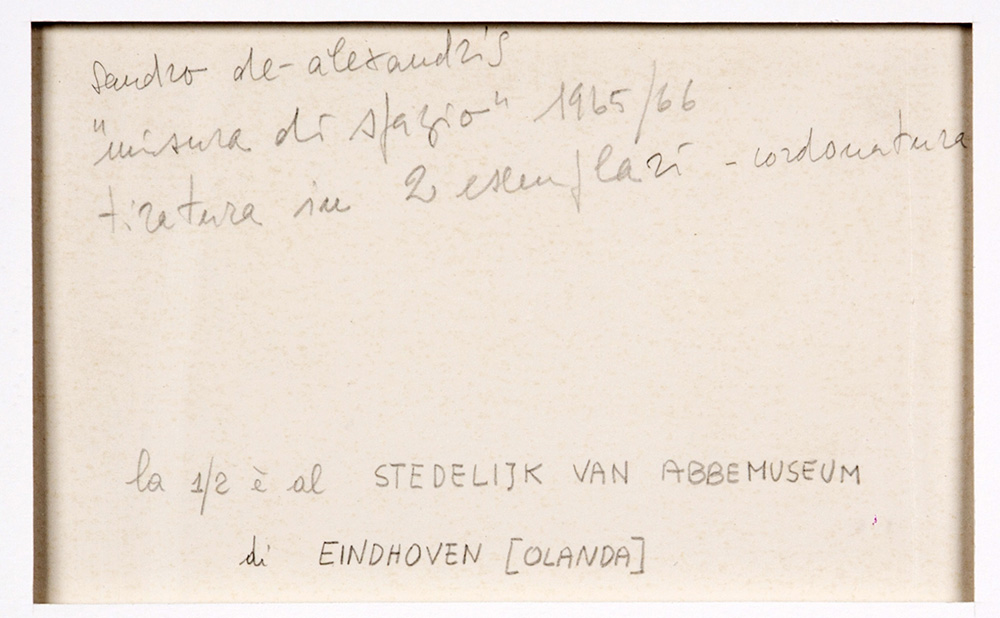 sandro de-alexandris
"misura di spazio" 1965/66
tiratura in 2 esemplari - cordonatura
la 1/2 è al STEDELIJK VAN ABBEMUSEUM
di EINDHOVEN [OLANDA]